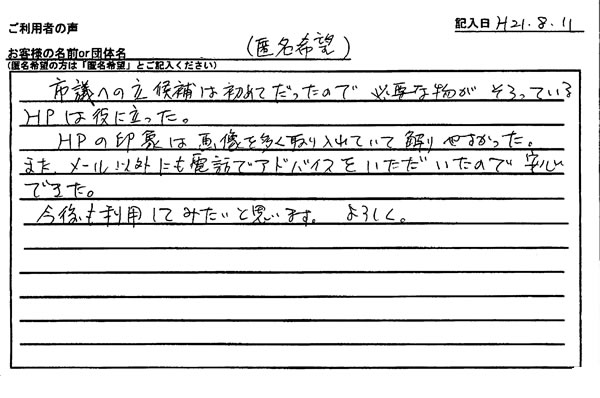 ご利用者の声
記入日 H21.8.11
お客様の名前or団体名 (匿名希望)
(匿名希望の方は「匿名希望」とご記入ください)
市議への立候補は初めてだったので 必要な物が そろっている
HPは役に立った。
HPの印象は画像を多く取り入れていて解りやすかった。
また、メール以外にも電話でアドバイスをいただいたので安心
できた。
今後も利用してみたいと思います。 よろしく。